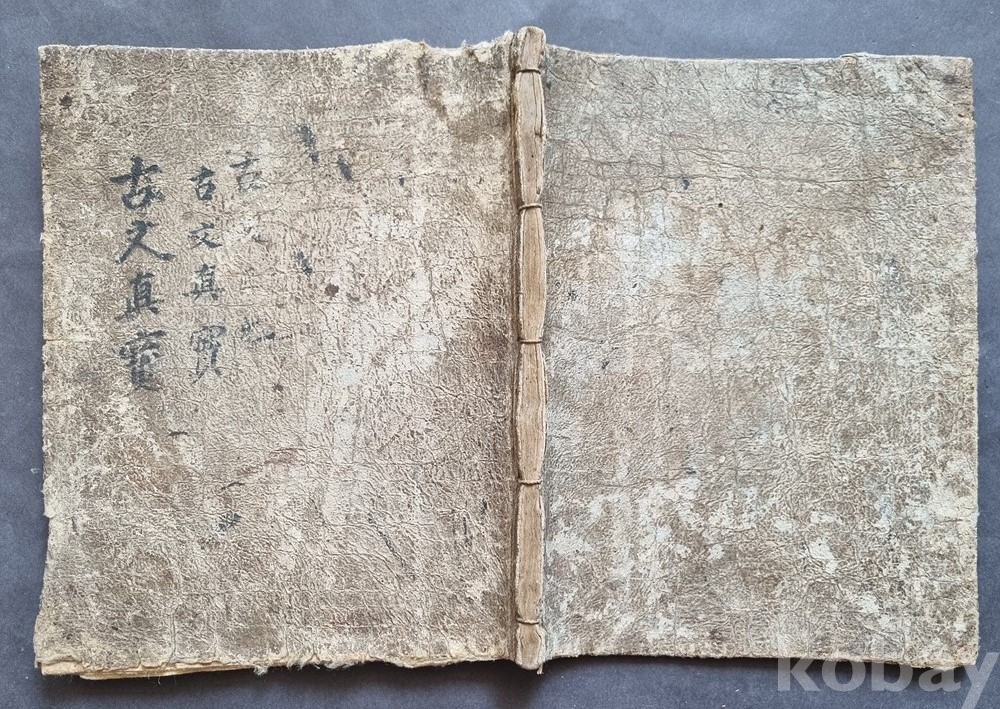 古文
古文真寶
古文真寶
kobay